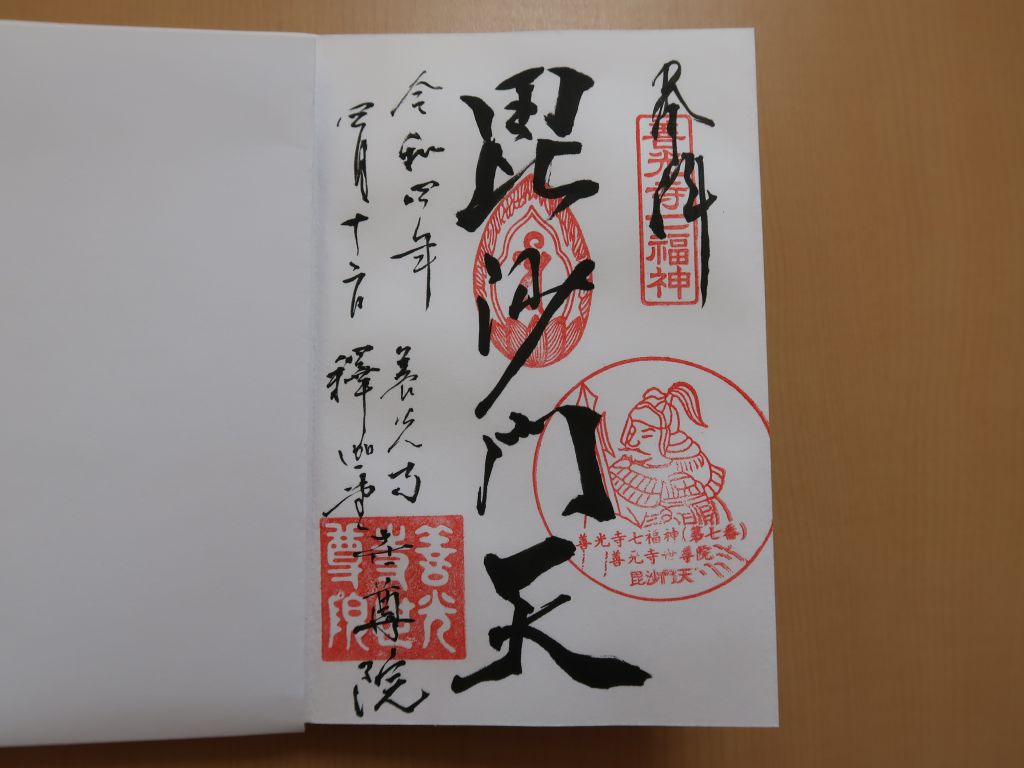 奉拝
善光寺七福神
毘沙門天
善光寺七福神(第七番)
善光寺世尊院
毘沙門天
令和四年
四月十六日
善光寺
釋迦堂世尊院
善光
寺世
尊院